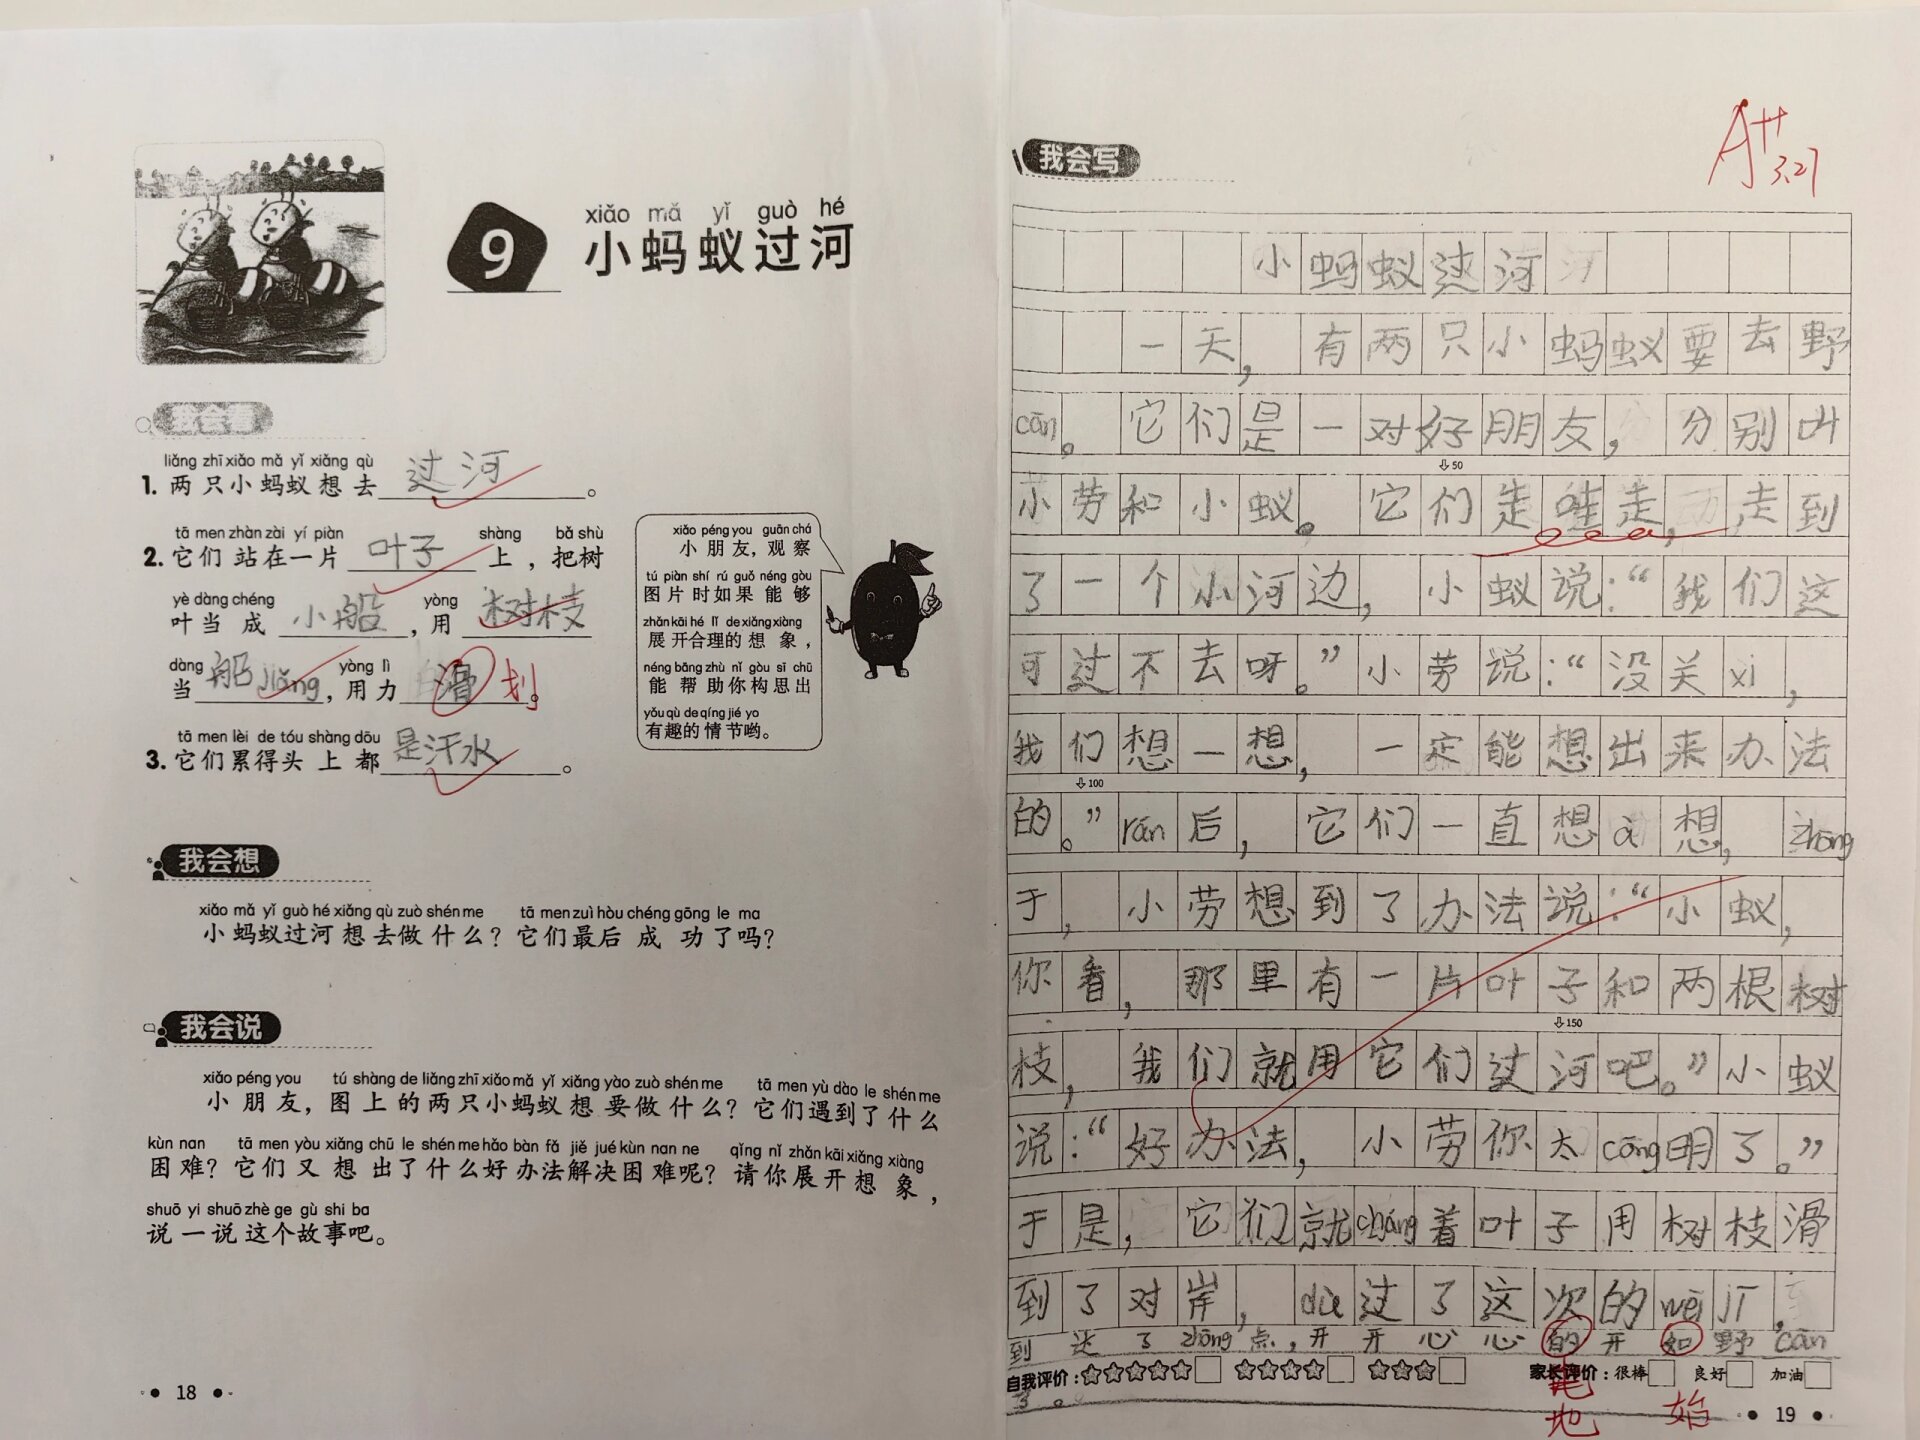 xiǎo mǎ yǐ guò hé
9 小蚂蚁过河
我会看
liǎng zhī xiǎo mǎ yǐ xiǎng qù
1. 两只小蚂蚁想去过河。
tā men zhàn zài yí piàn shàng bǎ shù
2. 它们站在一片叶子上，把树
yè dàng chéng yòng
叶当成小船，用树枝
dàng yòng lì
当船jiǎng，用力滑划。
tā men lèi de tóu shàng dōu
3. 它们累得头上都是汗水。
xiǎo péng you guān chá
小朋友，观察
tú piàn shí rú guǒ néng gòu
图片时如果能够
zhǎn kāi hé lǐ de xiǎng xiàng
展开合理的想象，
néng bāng zhù nǐ gòu sī chū
能帮助你构思出
yǒu qù de qíng jié yo
有趣的情节哟。
我会想
xiǎo mǎ yǐ guò hé xiǎng qù zuò shén me tā men zuì hòu chéng gōng le ma
小蚂蚁过河想去做什么？它们最后成功了吗？
我会说
xiǎo péng you tú shàng de liǎng zhī xiǎo mǎ yǐ xiǎng yào zuò shén me tā men yù dào le shén me
小朋友，图上的两只小蚂蚁想要做什么？它们遇到了什么
kùn nan tā men yòu xiǎng chū le shén me hǎo bàn fǎ jiě jué kùn nan ne qǐng nǐ zhǎn kāi xiǎng xiàng
困难？它们又想出了什么好办法解决困难呢？请你展开想象，
shuō yi shuō zhè ge gù shi ba
说一说这个故事吧。
18
我会写
A++ 3.27
小蚂蚁过河
一天，有两只小蚂蚁要去野
cān。它们是一对好朋友，分别叫
↓50
小劳和小蚁。它们走哇走，走到
了一个小河边，小蚁说：“我们这
可过不去呀。”小劳说：“没关xì，
我们想一想，一定能想出来办法
↓100
的。”rán后，它们一直想a想，zhōng
于，小劳想到了办法说：“小蚁，
你看，那里有一片叶子和两根树
↓150
枝，我们就用它们过河吧。”小蚁
说：“好办法，小劳你太cōng明了。”
于是，它们就cháng着叶子用树枝滑
到了对岸，dù过了这次的wēi jī，
到达了zhōng点，开开心心的开如野cān
自我评价：☆☆☆☆☆□ ☆☆☆☆□ ☆☆☆□ 家长评价：很棒□ 良好□ 加油□
了。
地 始
19